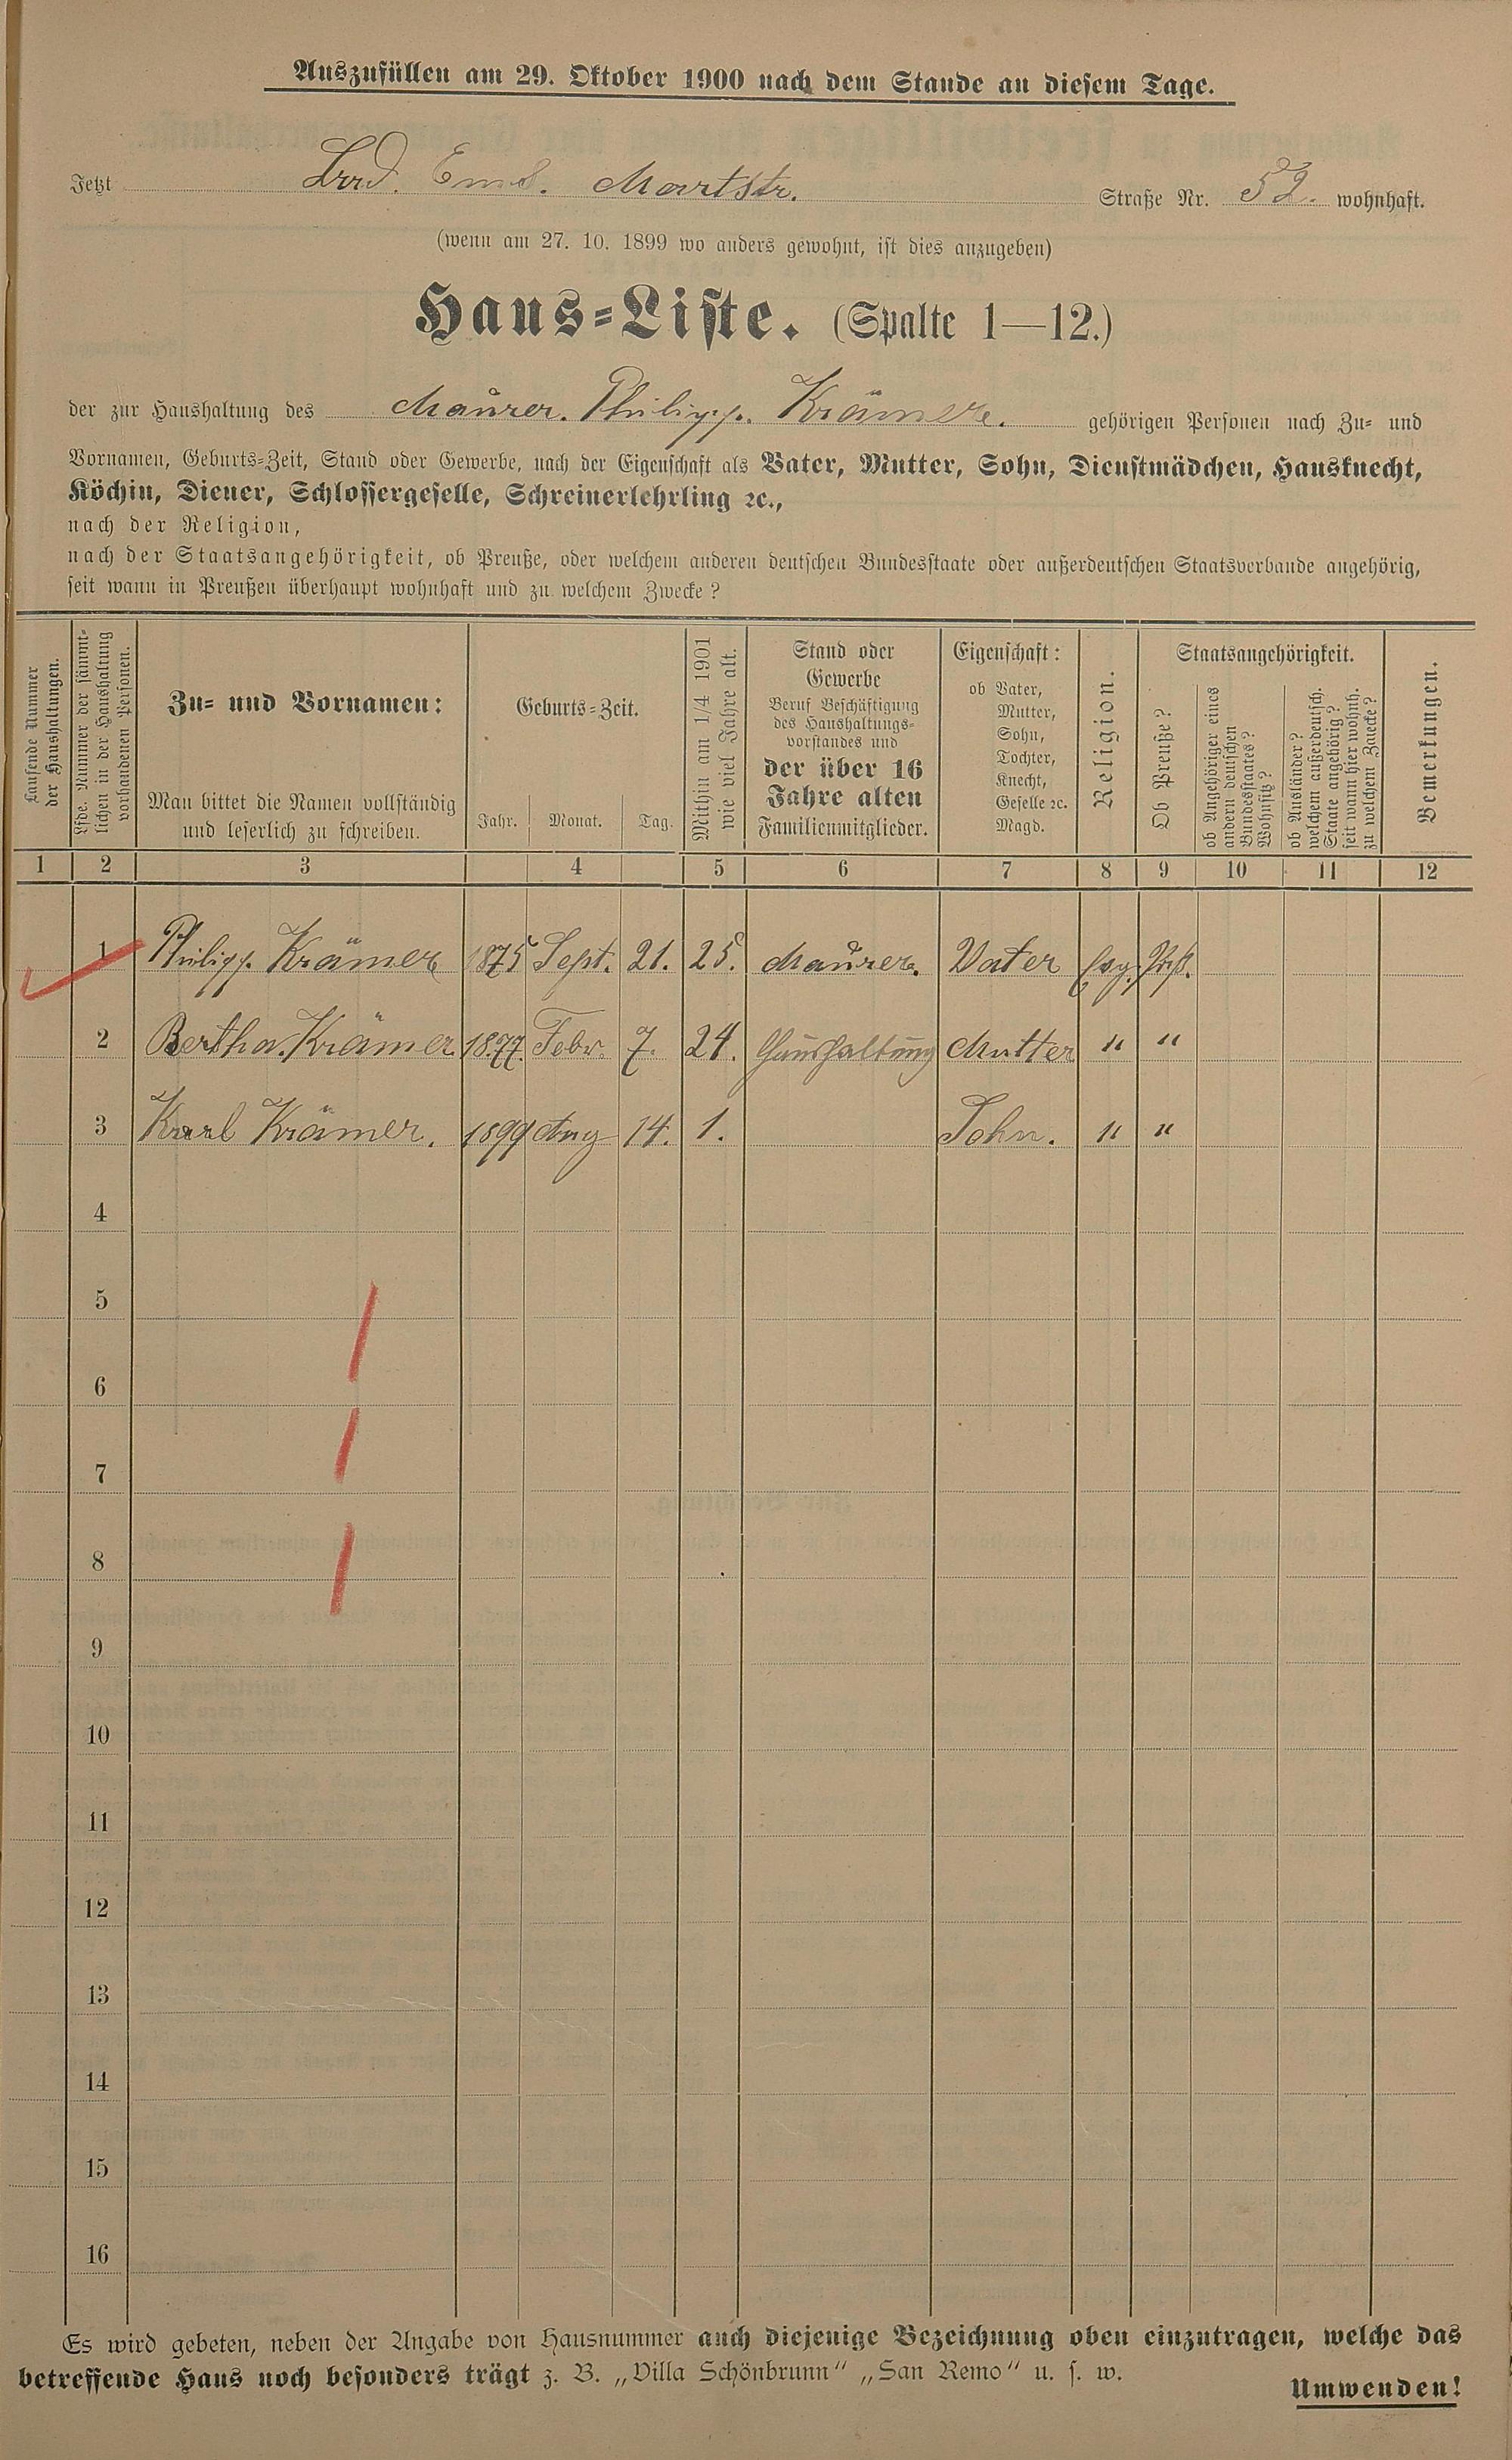 Auszufüllen am 29. Oktober 1900 nach dem Stande an diesem Tage.
Jetzt Bad. Ems. Marktstr. Straße Nr. 52. wohnhaft.
(wenn am 27. 10. 1899 wo anders gewohnt, ist dies anzugeben)
Haus-Liste. (Spalte 1—12.)
der zur Haushaltung des Maurer. Philipp. Krämer. gehörigen Personen nach Zu- und
Vornamen, Geburts-Zeit, Stand oder Gewerbe, nach der Eigenschaft als Vater, Mutter, Sohn, Dienstmädchen, Hausknecht,
Köchin, Diener, Schlossergeselle, Schreinerlehrling ꝛc.,
nach der Religion,
nach der Staatsangehörigkeit, ob Preuße, oder welchem anderen deutschen Bundesstaate oder außerdeutschen Staatsverbande angehörig,
seit wann in Preußen überhaupt wohnhaft und zu welchem Zwecke?
Laufende Nummer
der Haushaltungen.
Lfde. Nummer der sämmt-
lichen in der Haushaltung
vorhandenen Personen.
Zu- und Vornamen:
Man bittet die Namen vollständig
und leserlich zu schreiben.
Geburts-Zeit.
Jahr. Monat. Tag.
Mithin am 1/4 1901
wie viel Jahre alt.
Stand oder
Gewerbe
Beruf Beschäftigung
des Haushaltungs-
vorstandes und
der über 16
Jahre alten
Familienmitglieder.
Eigenschaft:
ob Vater,
Mutter,
Sohn,
Tochter,
Knecht,
Geselle ꝛc.
Magd.
Religion.
Staatsangehörigkeit.
Ob Preuße?
ob Angehöriger eines
andern deutschen
Bundesstaates?
Wohnsitz?
ob Ausländer?
welchem außerdeutsch.
Staate angehörig?
seit wann hier wohnh.
zu welchem Zwecke?
Bemerkungen.
1 2 3 4 5 6 7 8 9 10 11 12
1 Philipp. Krämer 1875 Sept. 21. 25. Maurer. Vater Evg. Prß.
2 Bertha. Krämer 1877. Febr. 7. 24. Haushaltung Mutter " "
3 Karl Krämer. 1899 Aug 14. 1. Sohn. " "
4
5
6
7
8
9
10
11
12
13
14
15
16
Es wird gebeten, neben der Angabe von Hausnummer auch diejenige Bezeichnung oben einzutragen, welche das
betreffende Haus noch besonders trägt z. B. „Villa Schönbrunn“ „San Remo“ u. s. w.
Umwenden!